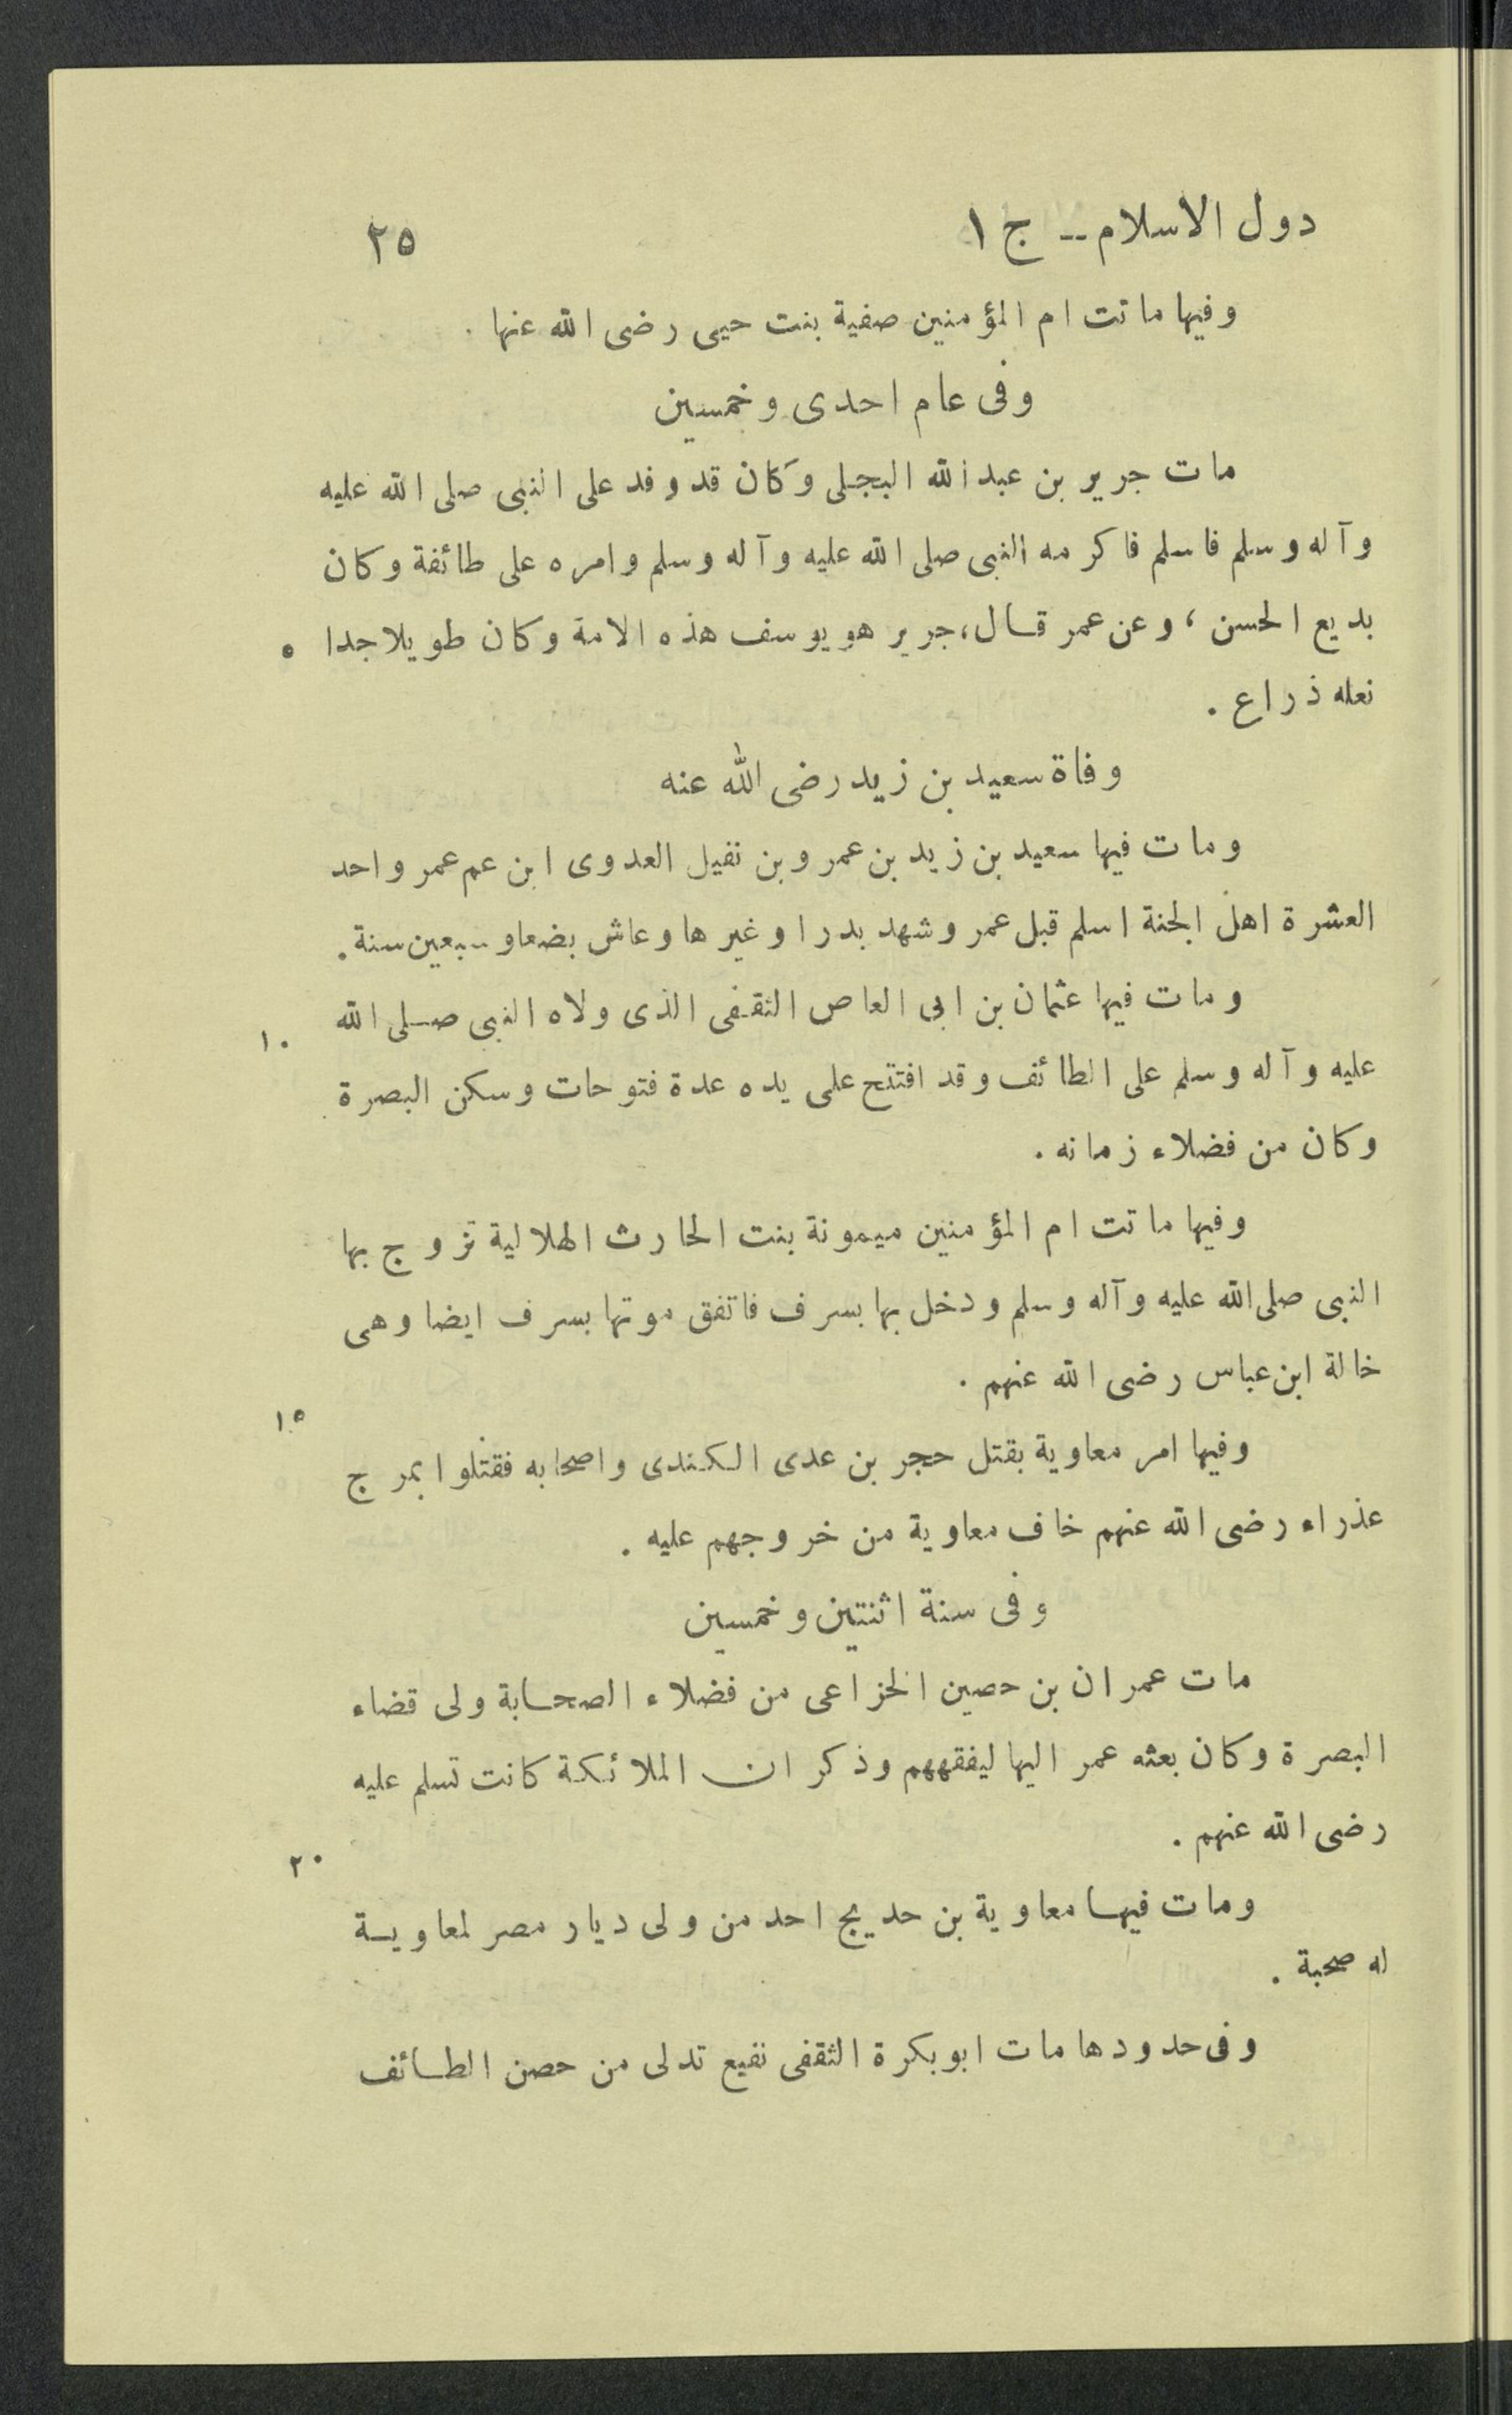 دول الاسلام -- ج ١ ٢٥
وفيها ماتت ام المؤمنين صفية بنت حيى رضى الله عنها .
وفى عام احدى وخمسين
مات جرير بن عبد الله البجلى وكان قد وفد على النبى صلى الله عليه
وآله وسلم فاسلم فاكرمه النبى صلى الله عليه وآله وسلم وامره على طائفة وكان
بديع الحسن ، وعن عمر قال ، جرير هو يوسف هذه الامة وكان طويلا جدا ٥
نعله ذراع .
وفاة سعيد بن زيد رضى الله عنه
ومات فيها سعيد بن زيد بن عمرو بن نفيل العدوى ابن عم عمر واحد
العشرة اهل الجنة اسلم قبل عمر وشهد بدرا وغيرها وعاش بضعا وسبعين سنة .
ومات فيها عثمان بن ابى العاص الثقفى الذى ولاه النبى صلى الله ١٠
عليه وآله وسلم على الطائف وقد افتتح على يده عدة فتوحات وسكن البصرة
وكان من فضلاء زمانه .
وفيها ماتت ام المؤمنين ميمونة بنت الحارث الهلالية تزوج بها
النبى صلى الله عليه وآله وسلم ودخل بها بسرف فاتفق موتها بسرف ايضا وهى
خالة ابن عباس رضى الله عنهم . ١٥
وفيها امر معاوية بقتل حجر بن عدى الكندى واصحابه فقتلوا بمرج
عذراء رضى الله عنهم خاف معاوية من خروجهم عليه .
وفى سنة اثنتين وخمسين
مات عمران بن حصين الخزاعى من فضلاء الصحابة ولى قضاء
البصرة وكان بعثه عمر اليها ليفقههم وذكر ان الملائكة كانت تسلم عليه
رضى الله عنهم . ٢٠
ومات فيها معاوية بن حديج احد من ولى ديار مصر لمعاوية
له صحبة .
وفى حدودها مات ابو بكرة الثقفى نفيع تدلى من حصن الطائف